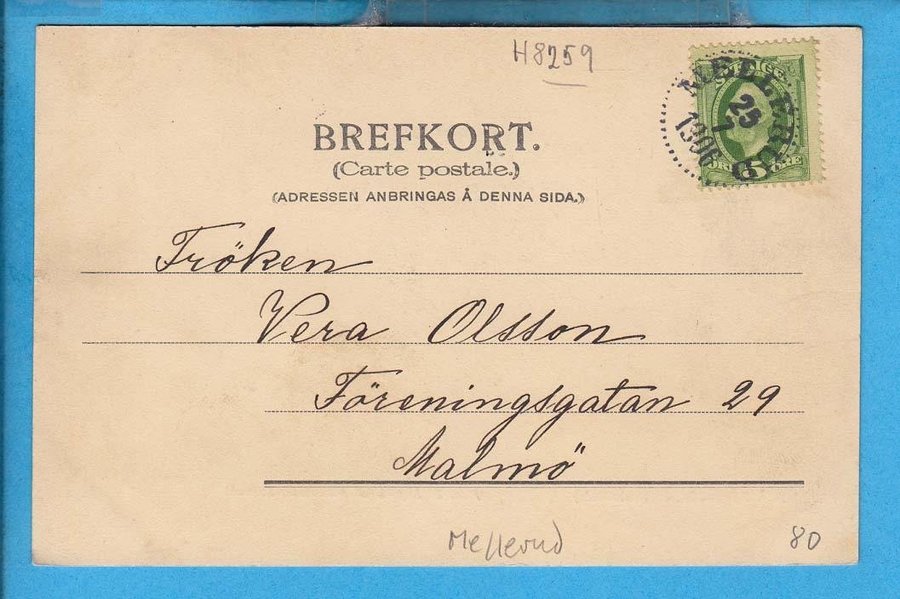 H8259
MELLERUD
25
1
1906
5 ÖRE
BREFKORT.
(Carte postale.)
(ADRESSEN ANBRINGAS Å DENNA SIDA.)
Fröken
Vera Olsson
Föreningsgatan 29
Malmö
Mellerud
80